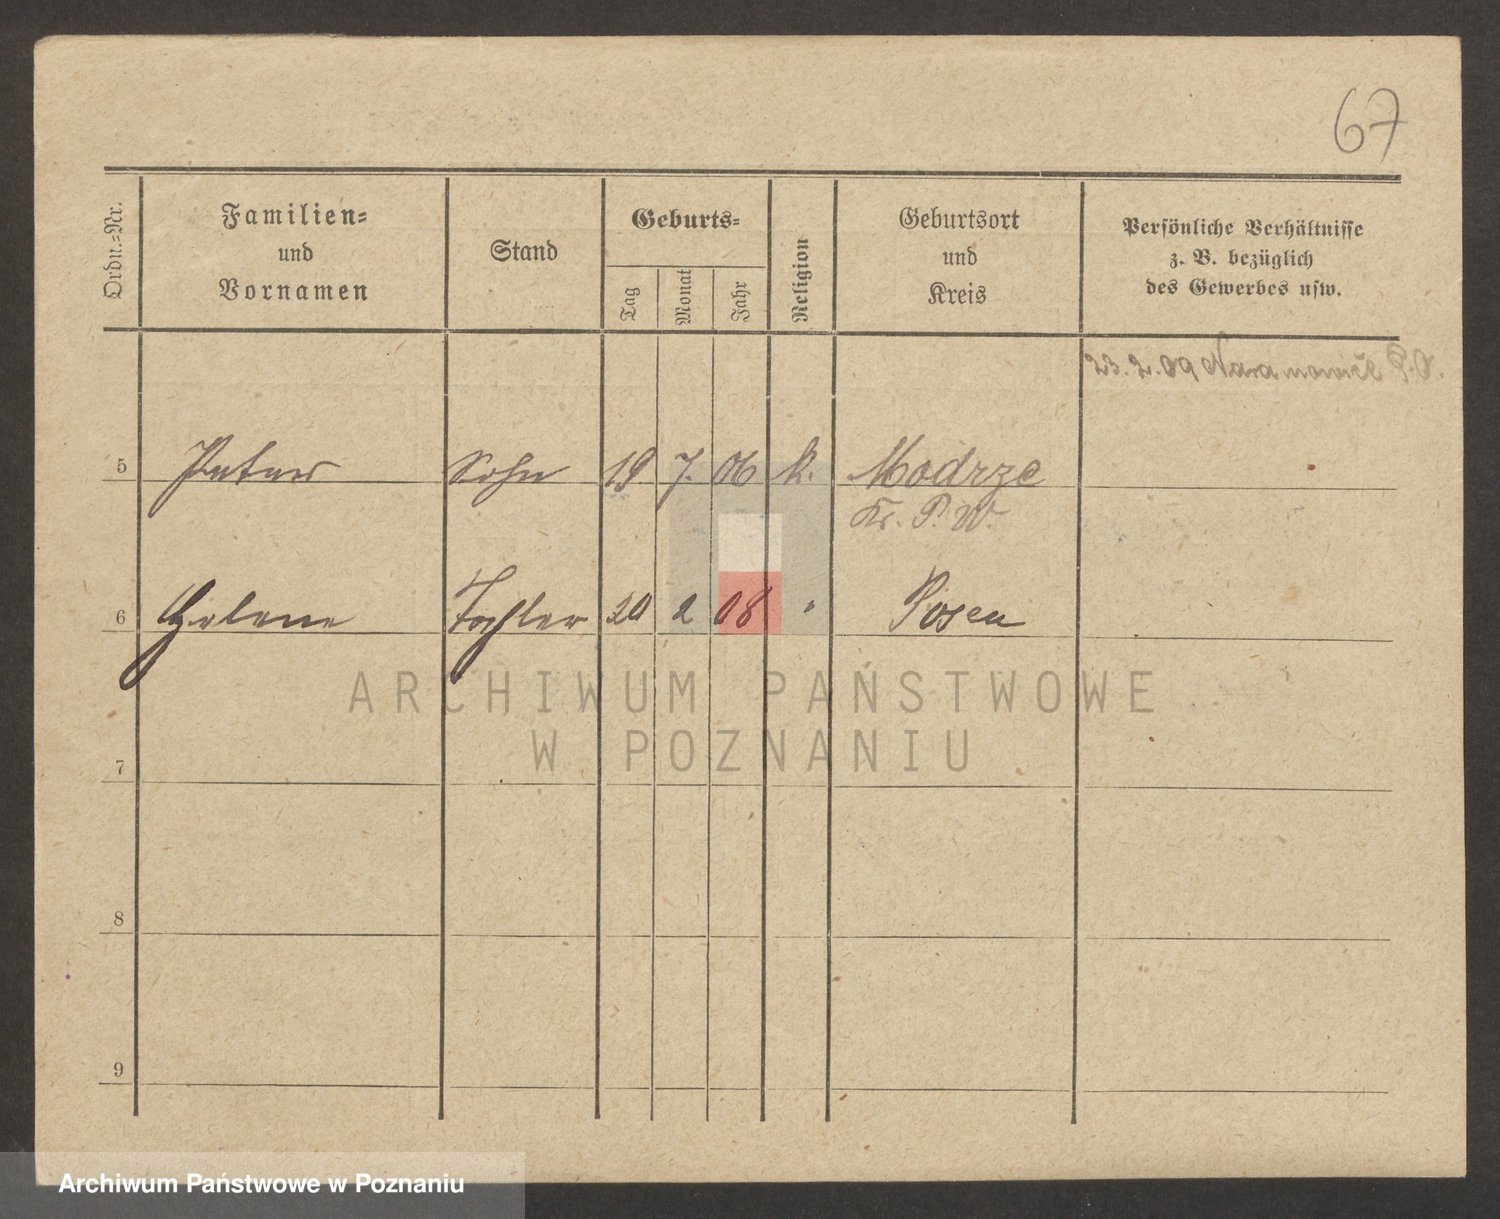 67
Ordn.=Nr.
Familien=
und
Vornamen
Stand
Geburts=
Tag
Monat
Jahr
Religion
Geburtsort
und
Kreis
Persönliche Verhältnisse
z. B. bezüglich
des Gewerbes usw.
23. 2. 09 Naramowice P. O.
5 Peter Sohn 19 7. 06 k. Modrze
Kr. P. W.
6 Helene Tochter 20 2 08 " Posen
ARCHIWUM PAŃSTWOWE
W POZNANIU
7
8
9
Archiwum Państwowe w Poznaniu